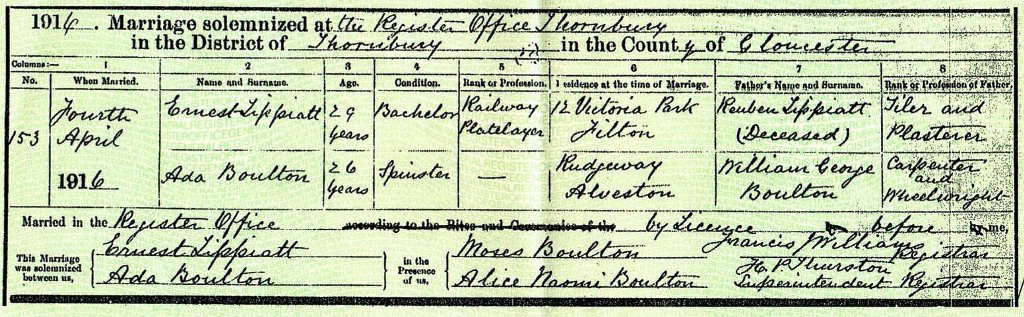 1916. Marriage solemnized at the Register Office Thornbury
in the District of Thornbury in the County of Gloucester
Columns:— 1 2 3 4 5 6 7 8
No. When Married. Name and Surname. Age. Condition. Rank or Profession. Residence at the time of Marriage. Father's Name and Surname. Rank or Profession of Father.
Fourth Ernest Lippiatt 29 Bachelor Railway 12 Victoria Park Reuben Lippiatt Tiler and
153 April years Platelayer Filton (Deceased) Plasterer
1916 Ada Boulton 26 years Spinster — Rudgeway Alveston William George Boulton Carpenter and Wheelwright
Married in the Register Office according to the Rites and Ceremonies of the by Licence before me,
This Marriage was solemnized between us, Ernest Lippiatt in the Presence of us, Moses Boulton Francis J Williams Registrar
Ada Boulton Alice Naomi Boulton H. P. Thurston Superintendent Registrar